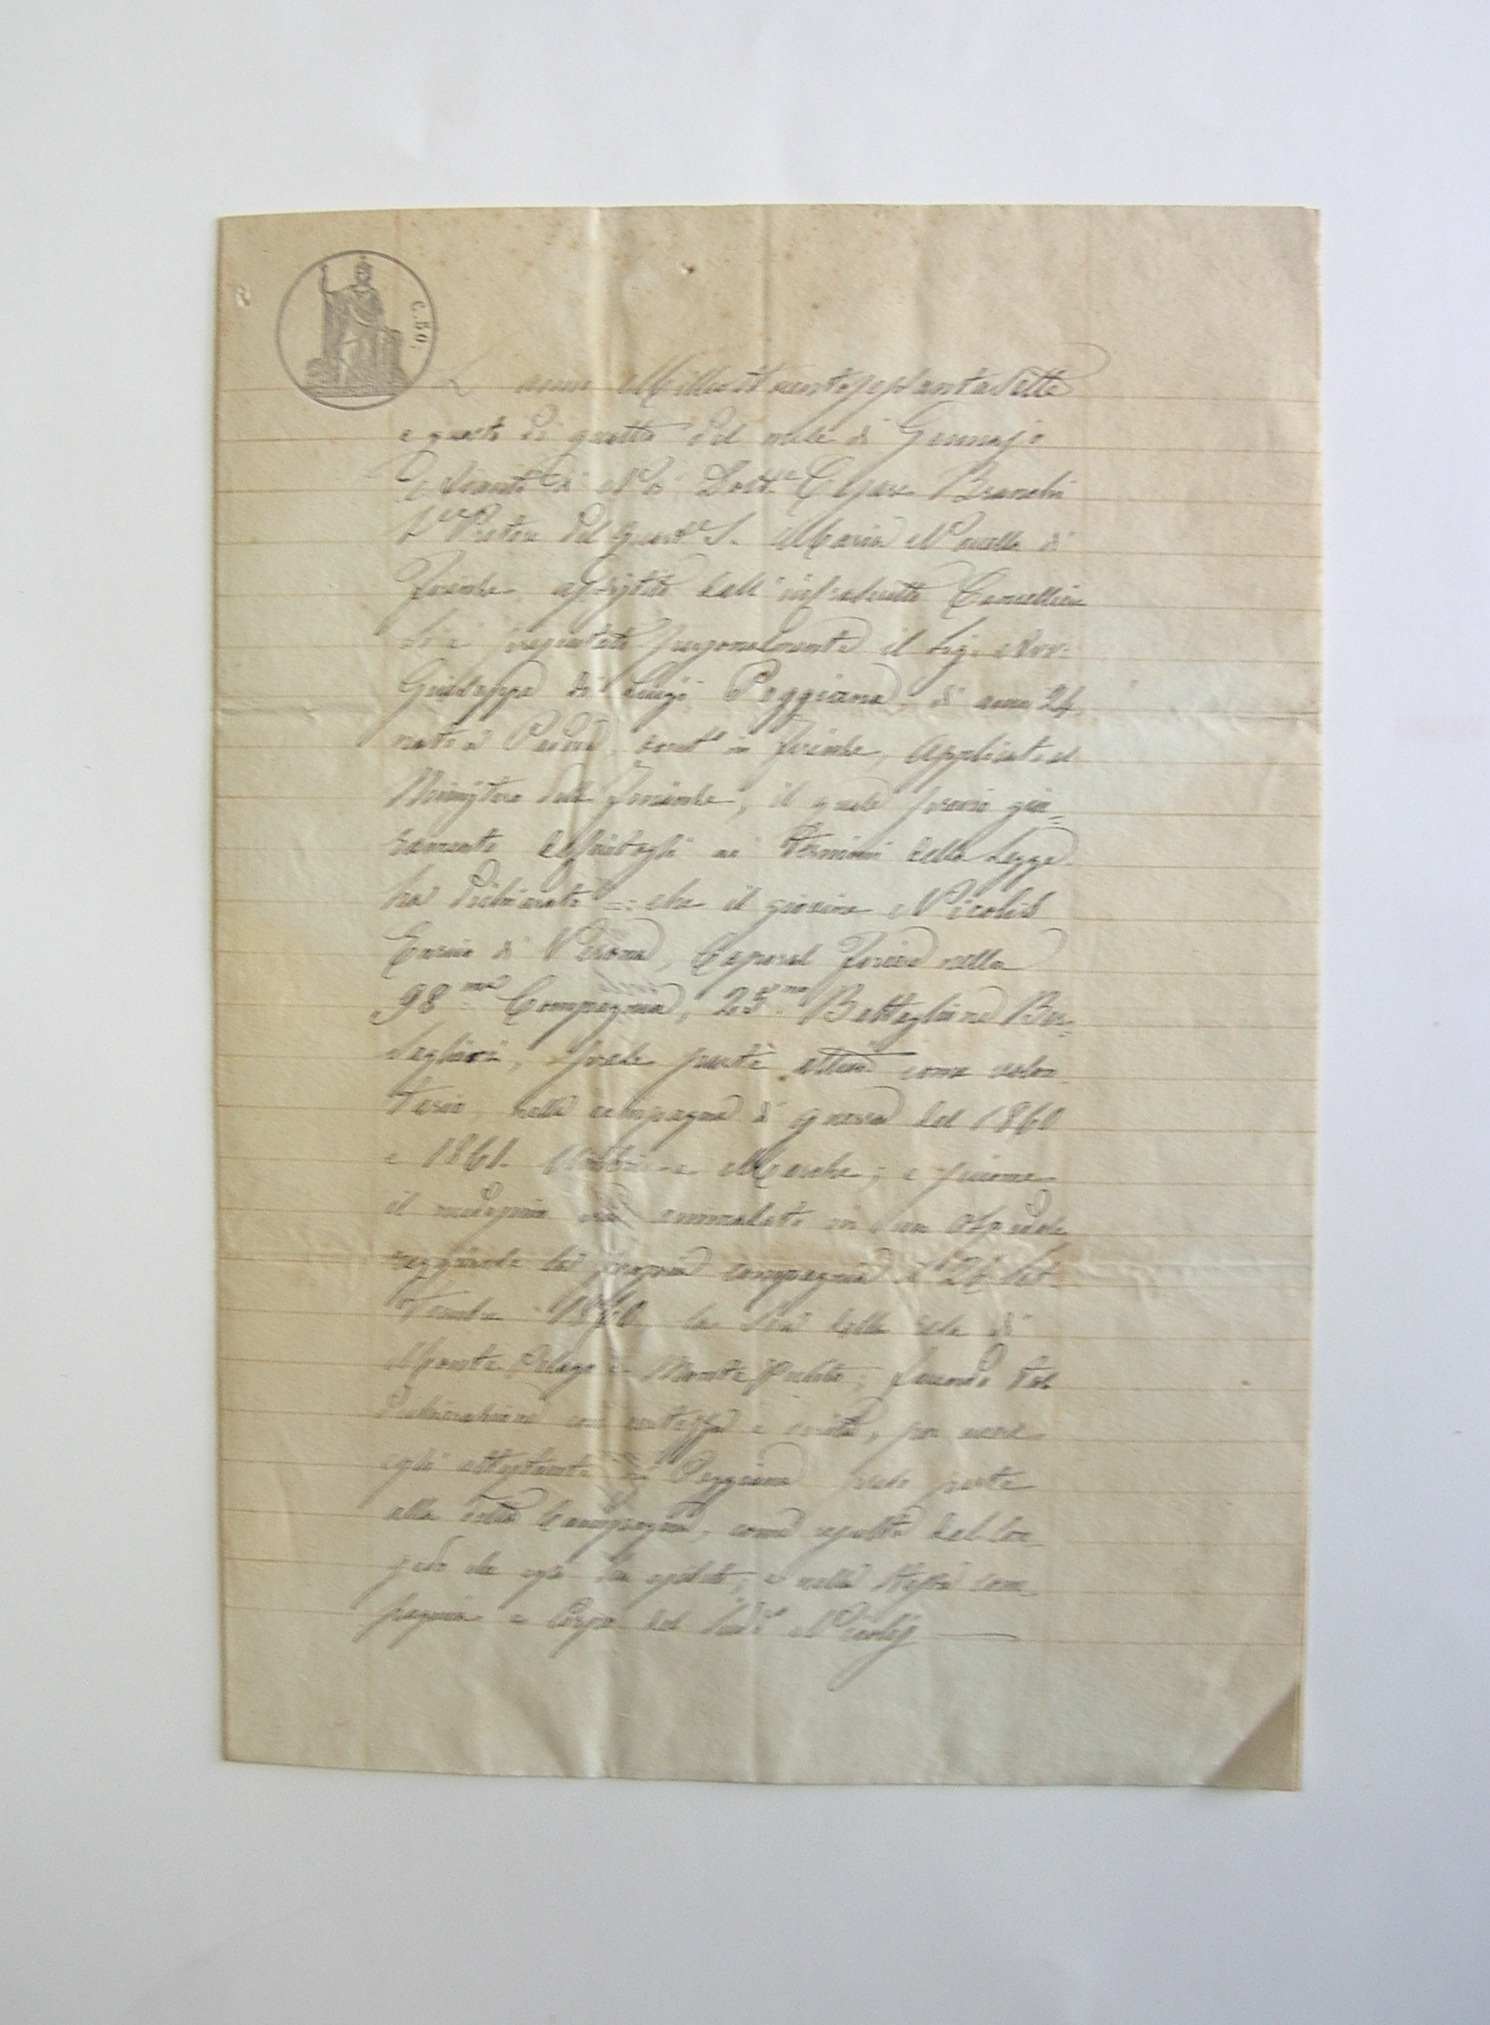 C. 50.
L'anno Milleottocentosessantasette
e questo dì quattro del mese di Gennajo
Davanti di Noi Dott.e Cesare Bianchi
Pretore del Quart.e S. Maria Novella di
Firenze, assistito dall'infrascritto Cancelliere
si è presentato personalmente il Sig. Avv.
Giuseppe di Luigi Poggiana, di anni 24
nato a Padova, domt.o in Firenze, Applicato al
Ministero delle Finanze, il quale previo giu=
ramento deferitogli ai termini della Legge
ha dichiarato =: che il giovine Nicolis
Enrico di Verona, Caporal Furiere nella
98.ma Compagnia, 25.mo Battaglione Ber=
saglieri, prese parte attiva come volon
tario, nella campagna di guerra del 1860
e 1861. Umbria e Marche; e siccome
il medesimo era ammalato in un Ospedale
raggiunse la propria compagnia il 26 Set
tembre 1860 la sera della resa di
Monte Pelago e Monte Pulito; facendo tal
dichiarazione con certezza e verità, per avere
egli attestante Poggiana preso parte
alla detta Campagna, come resulta dal Con
gedo che egli ha esibito; e nella stessa com=
pagnia e Corpo del Sud.o Nicolis